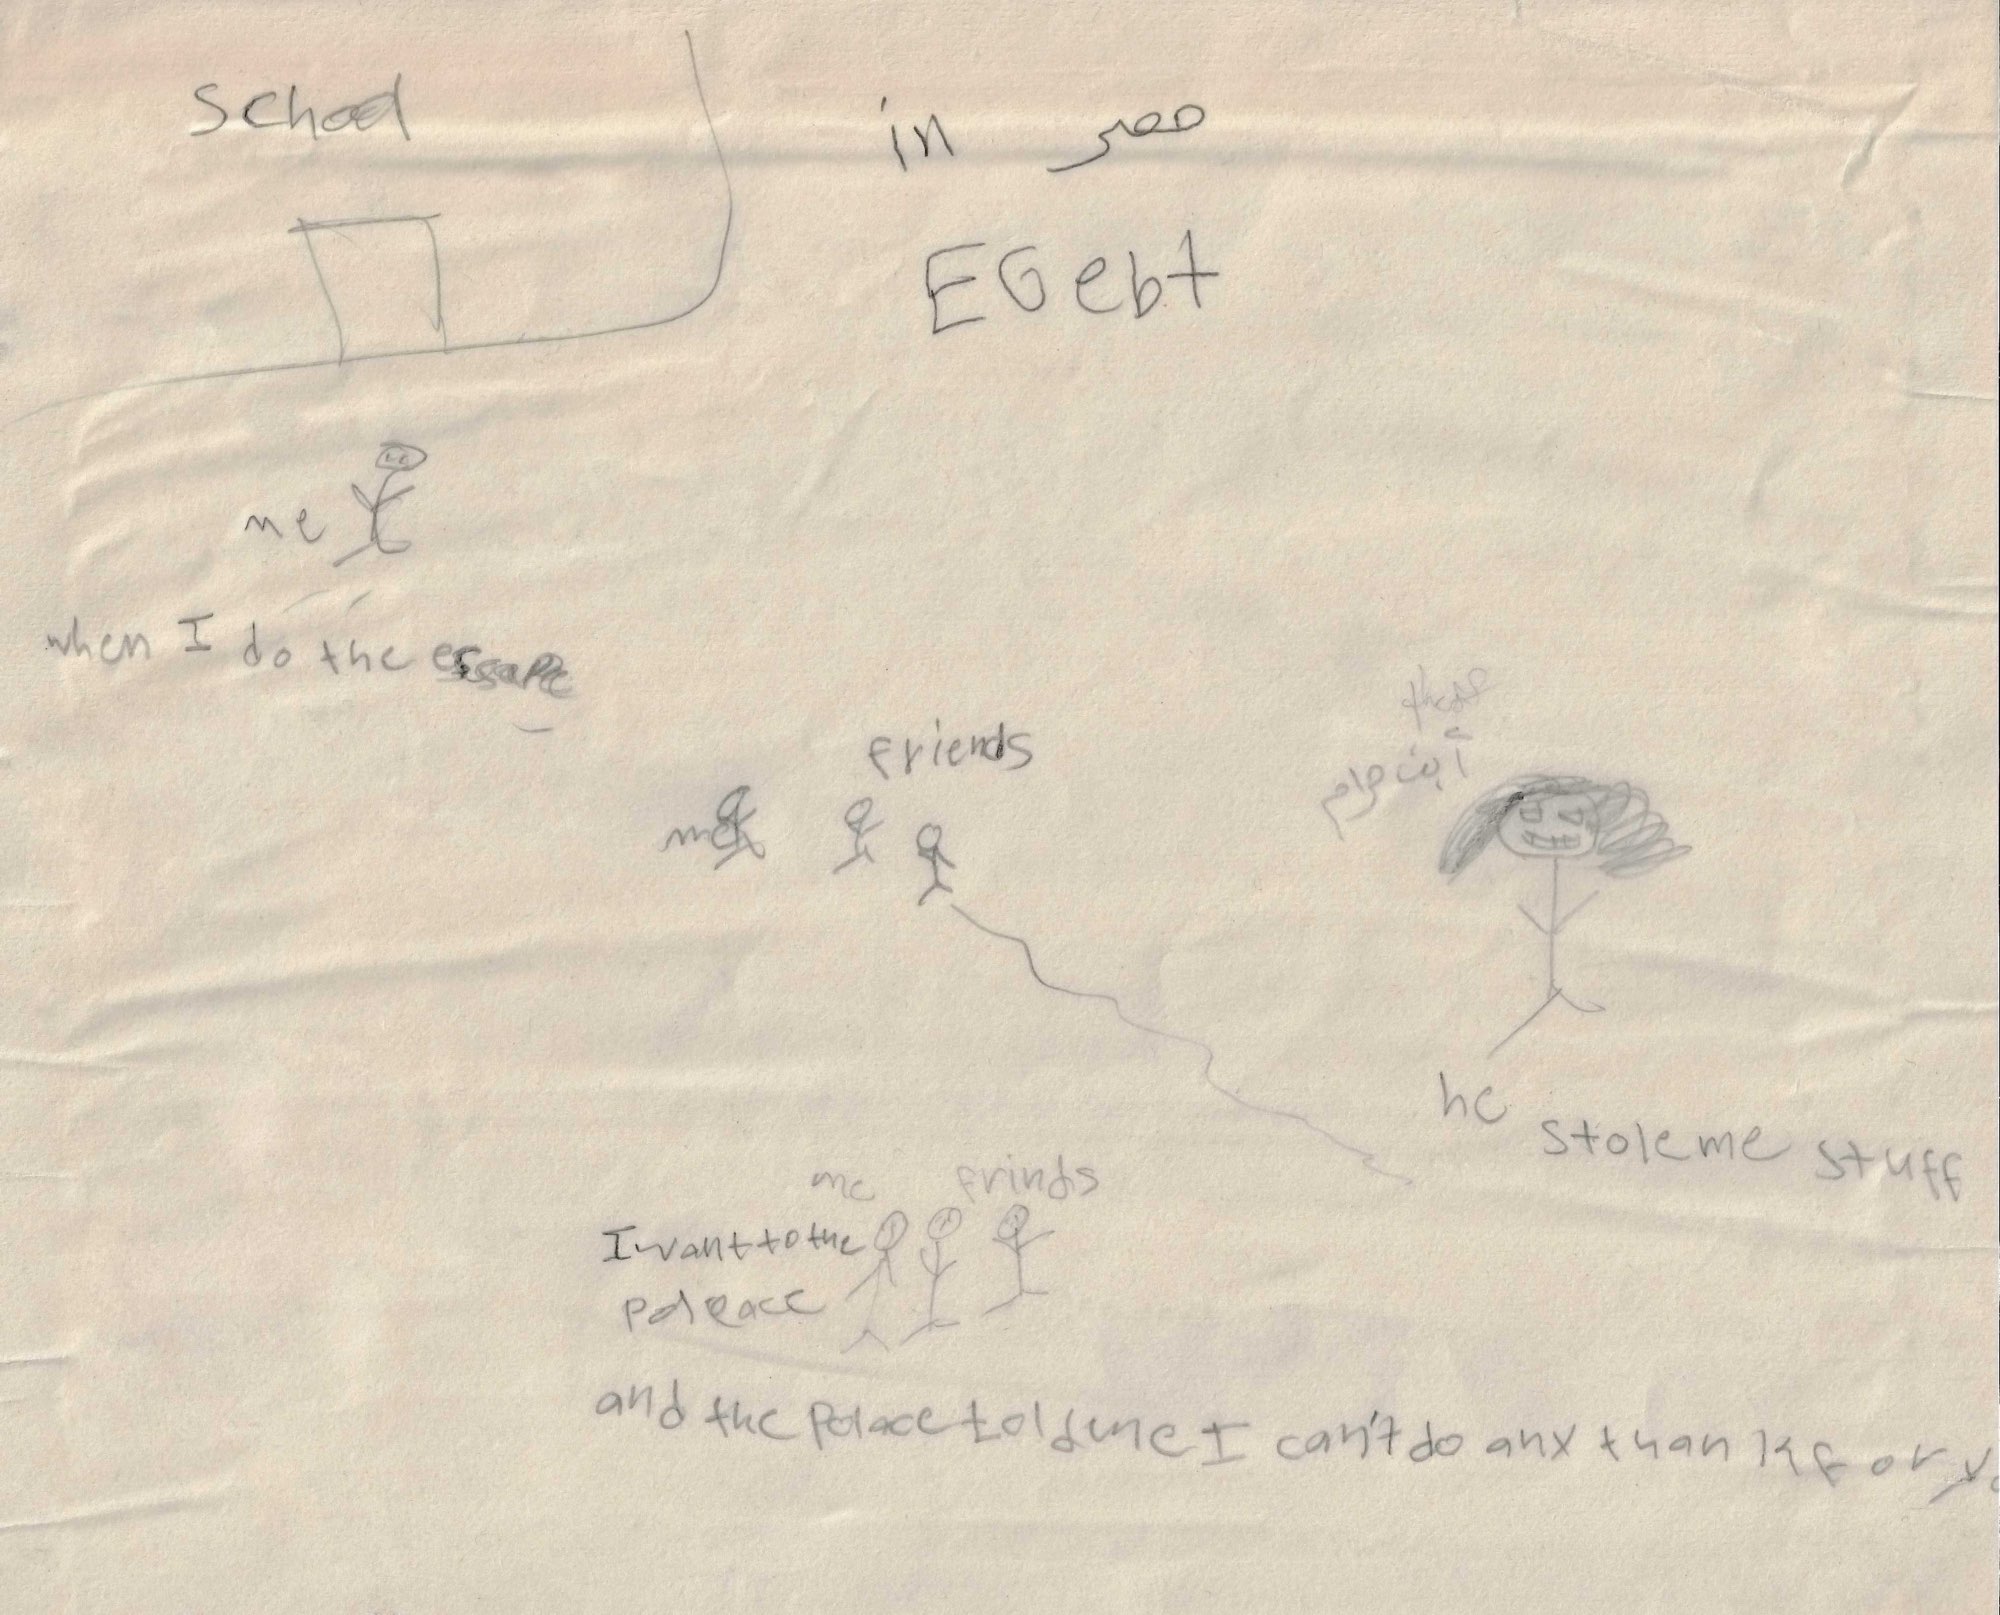 school
in مصر
EGebt
me
when I do the essape
friends
me
he stole me stuff
me frinds
I want to the
poleace
and the polace told me I can't do anx thank for yo